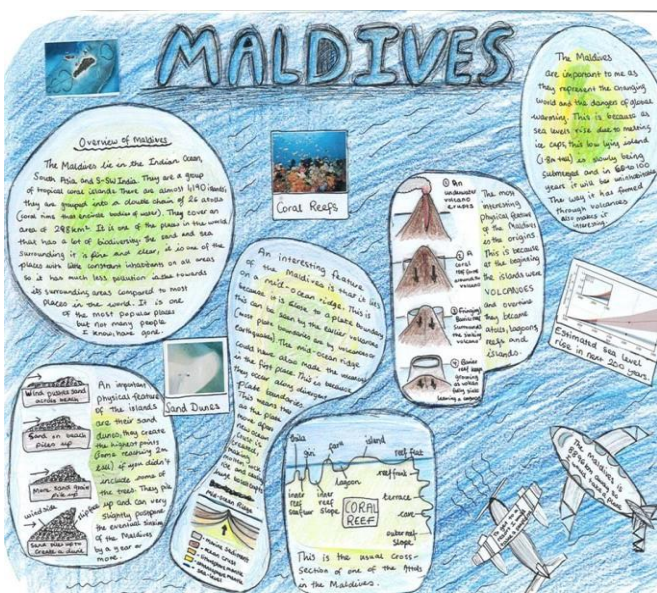 MALDIVES
Overview of Maldives
The Maldives lie in the Indian Ocean,
South Asia and S-SW India. They are a group
of tropical coral islands. There are almost 1,190 islands,
they are grouped into a double chain of 26 atolls
(coral rims that encircle bodies of water). They cover an
area of 298km². It is one of the places in the world
that has a lot of biodiversity. The land and sea
surrounding it is fine and clear, it is one of the
places with little constant inhabitants on all areas
so it has much less pollution towards
its surrounding areas compared to most
places in the world. It is one
of the most popular places
but not many people
I know, have gone.
Coral Reefs
The Maldives
are important to me as
they represent the changing
world and the dangers of global
warming. This is because as
sea levels rise due to melting
ice caps, this low lying island
is slowly being
submerged and in to 100
years it will be uninhabitable.
The way it has formed
through volcanoes
also makes it
interesting.
① An
underwater
volcano
erupts
② A
coral
reef
around
volcano
③ Fringing/
Barrier reef
surrounds
the sinking
volcano
④ Barrier
reef keep
growing
as volcano
fully sinks
leaving a
The most
interesting
physical feature
of the Maldives
is the origins
This is because
at the beginning
the islands were
VOLCANOES
and overtime
they became
atolls, lagoons,
reefs and
islands.
Estimated Sea level
rise in next 200 years.
An interesting feature
of the Maldives is that it lies
on a mid-ocean ridge. This is
because it is close to a plate boundary
this can be seen by the earlier volcanoes
(most plate boundaries are by volcanoes or
earthquakes). The mid-ocean ridge
could have also made the volcanoes
in the first place. This is because
they occur along divergent
plate boundaries
This means that
as the plates
move apart
new ocean
crust is
Mid-Ocean Ridge
Sand Dunes
Wind pushes sand
across beach
Sand on beach
piles up
More sand grain
pile up
windside
Sand piles up to
create a dune
An important
physical feature
of the islands
are their sand
dunes, they create
the highest points
(Some reaching 2m
tall) if you didn't
include some of
the trees. They pile
up and can very
slightly postpone
the eventual sinking
of the Maldives
by a year or
more.
giri
faru
island
reef flat
lagoon
reef front
inner
reef
inner
reef
slope
terrace
cave
outer reef
slope
CORAL
REEF
This is the usual cross-
section of one of the Atolls
in the Maldives.
The Maldives is
away so